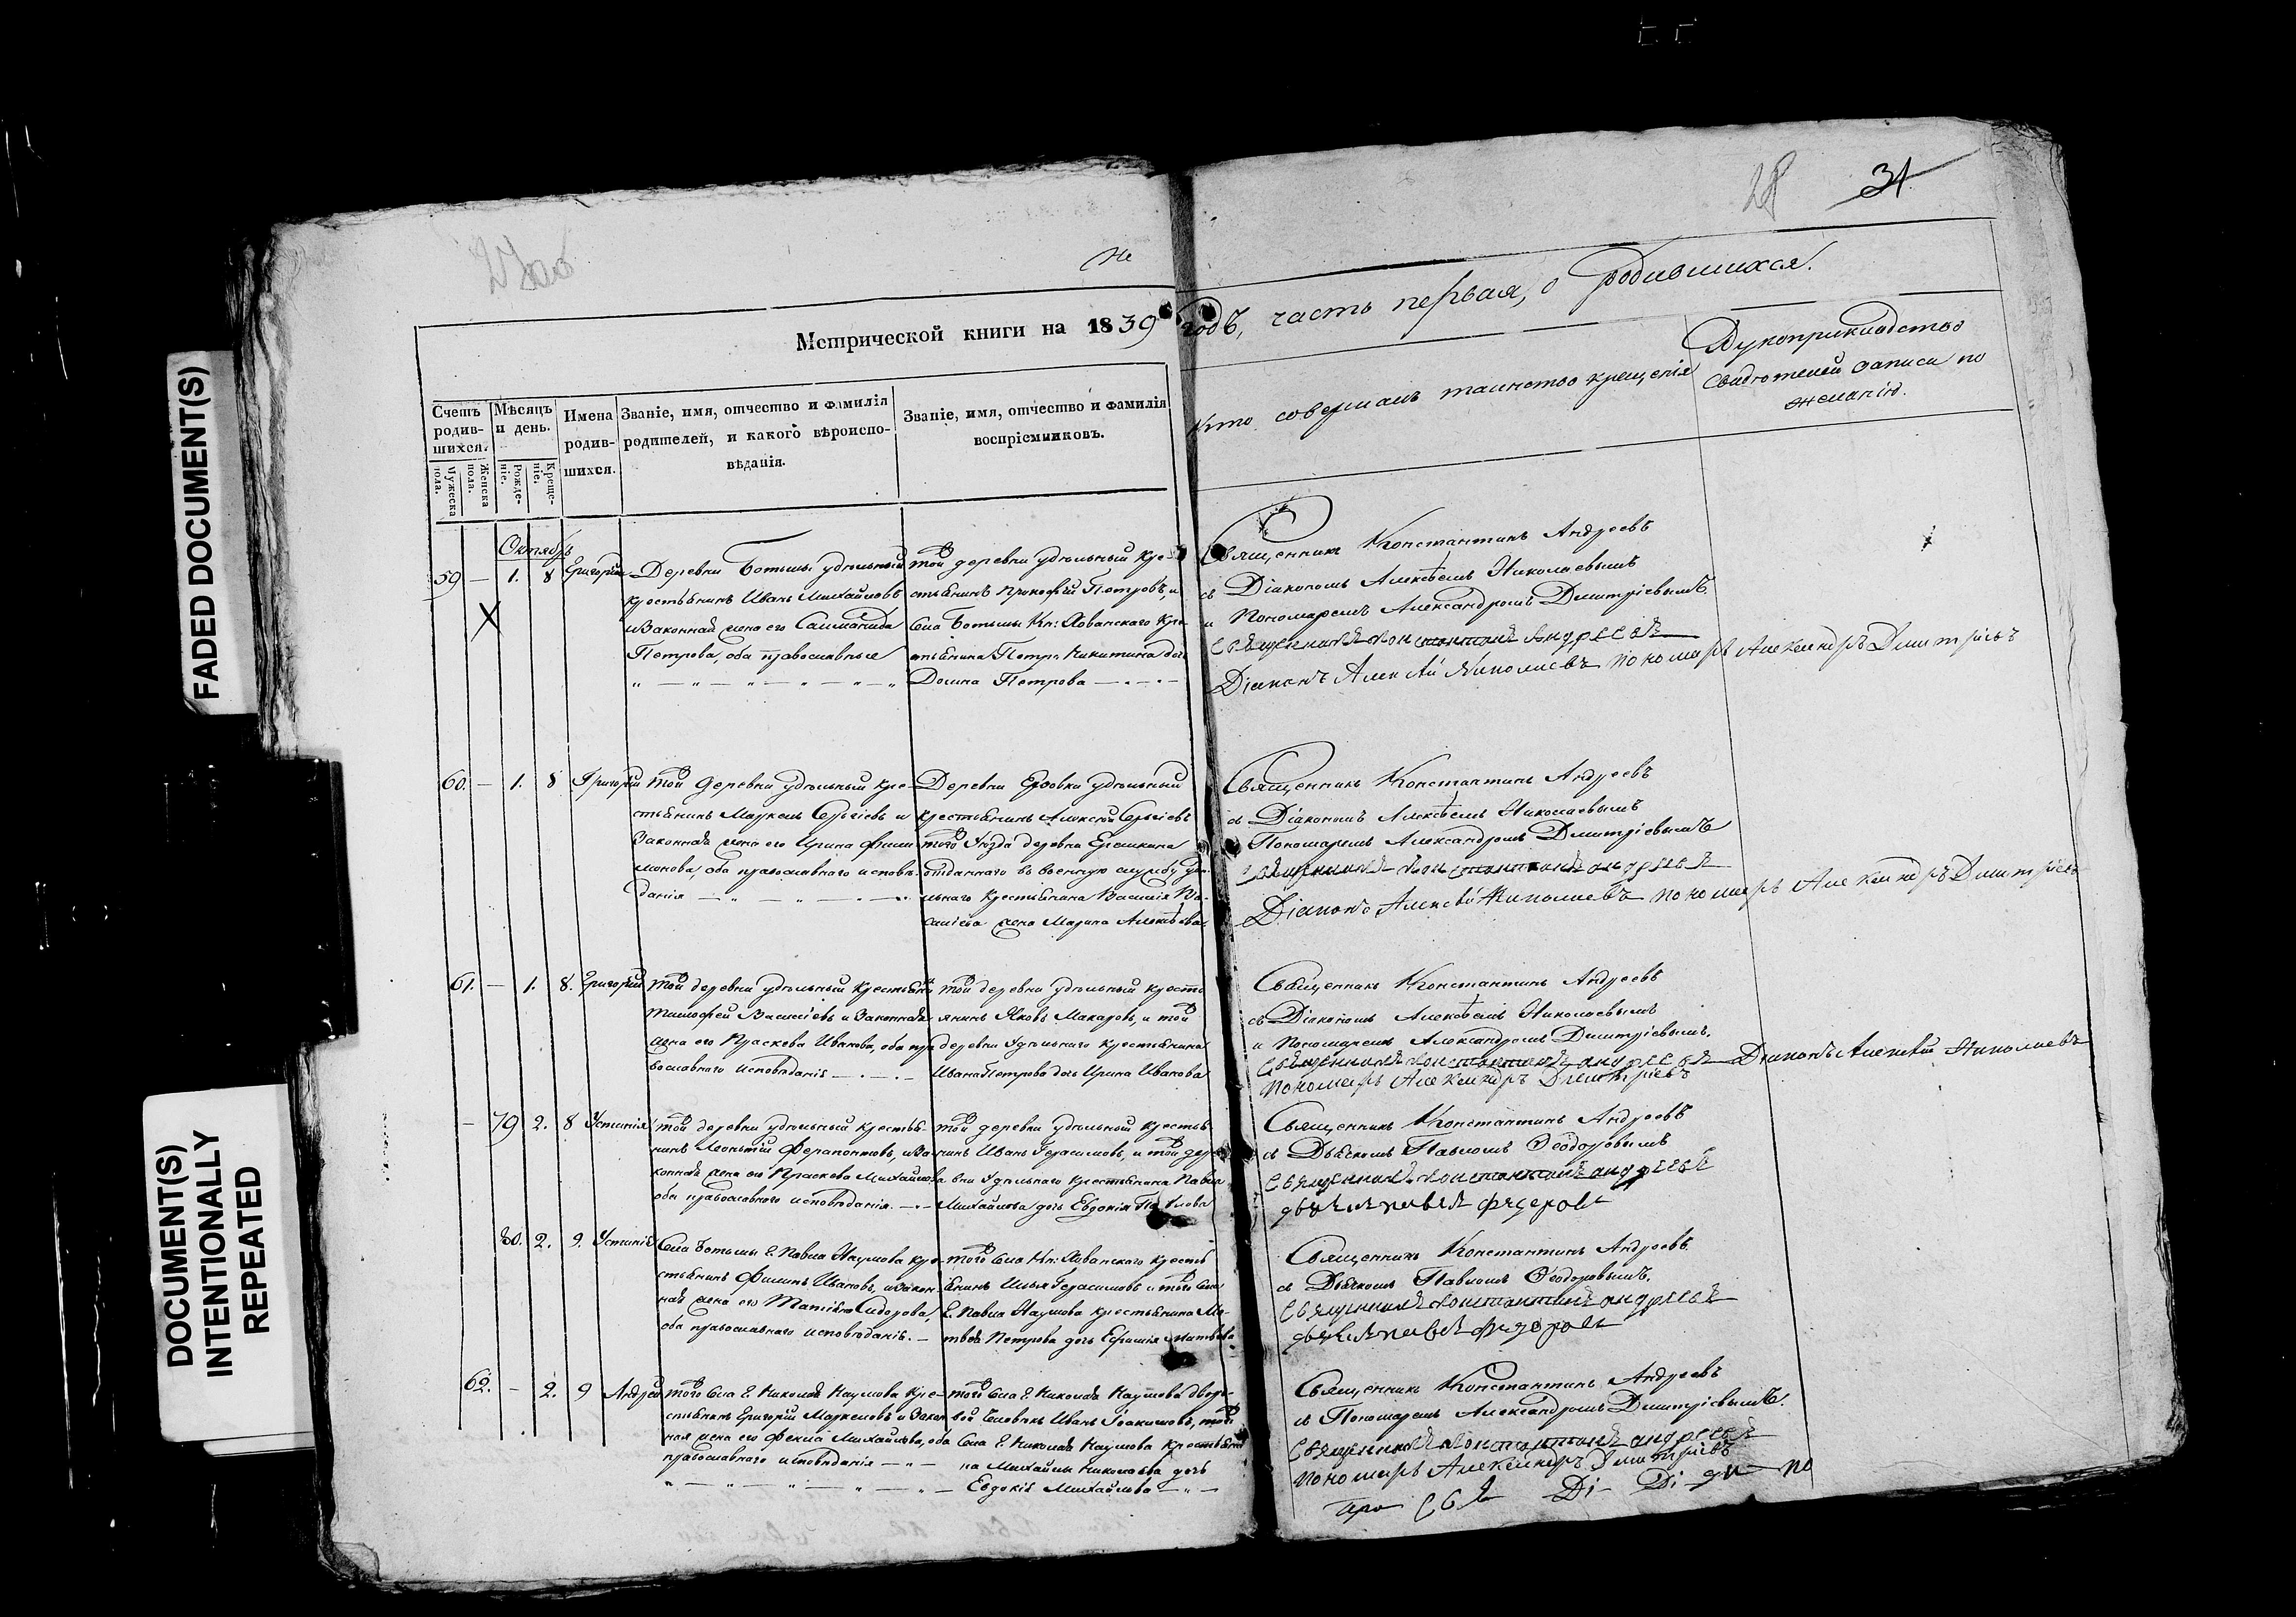 FADED DOCUMENT(S)
DOCUMENT(S)
INTENTIONALLY
REPEATED
28 31
Метрической книги на 1839 годъ, часть первая, о родившихся.
Счетъ родив-шихся.
Мужеска пола.
Женска пола.
Мѣсяцъ и день.
Рожде-ніе.
Креще-ніе.
Имена родив-шихся.
Званіе, имя, отчество и фамилія
родителей, и какого вѣроиспо-
вѣданія.
Званіе, имя, отчество и фамилія
воспріемниковъ.
Кто совершалъ таинство крещенія
Рукоприкладство
свидѣтелей записи по
желанію.
Октябрь
59 — 1. 8 Григорій
Деревни Ботьмы удѣльный
крестьянинъ Иванъ Михайловъ
и законная жена его
Петрова, оба православные
Той деревни удѣльный кре-
стьянинъ Прокофій Петровъ, и
села Ботьмы Кн: Хованскаго кре-
стьянина Петра Никитина дочь
Домна Петрова
Священникъ Константинъ Андреевъ
съ Діакономъ Алексѣемъ Николаевымъ
и Пономаремъ Александромъ Димитріевымъ.
Священникъ Константинъ Андреевъ
Діаконъ Алексѣй Николаевъ Пономарь Александръ Дмитріевъ
60. — 1. 8 Григорій
Той деревни удѣльный кре-
стьянинъ Маркелъ Сергіевъ и
законная жена его Ирина Фили
монова, оба православнаго исповѣ-
данія
Деревни Ерзовки удѣльный
крестьянинъ Алексѣй Сергіевъ
того уѣзда деревни Ерешкина
отданнаго въ военную службу удѣ-
льнаго крестьянина Василія Ва-
силіева жена Марина Алексѣева
Священникъ Константинъ Андреевъ
съ Діакономъ Алексѣемъ Николаевымъ
Пономаремъ Александромъ Димитріевымъ
Священникъ Константинъ Андреевъ
Діаконъ Алексѣй Николаевъ Пономарь Александръ Дмитріевъ
61. — 1. 8. Григорій
Той деревни удѣльный крестьянинъ
Тимофей Василіевъ и законная
жена его Праскева Иванова, оба пра
вославнаго исповѣданія
Той деревни удѣльный кресть
янинъ Яковъ Макаровъ, и той
деревни удѣльнаго крестьянина
Ивана Петрова дочь Ирина Иванова
Священникъ Константинъ Андреевъ
съ Діакономъ Алексѣемъ Николаевымъ
и Пономаремъ Александромъ Димитріевымъ.
Священникъ Константинъ Андреевъ Діаконъ Алексѣй Николаевъ
Пономарь Александръ Дмитріевъ
— 79 2. 8 Устинія
Той деревни удѣльный кресть-
нинъ Леонтій Ферапонтовъ, и за
конная жена его Праскева Михайлова
оба православнаго исповѣданія.
Той деревни удѣльный кресть
нинъ Иванъ Герасимовъ, и той дере
вни удѣльнаго крестьянина Павла
Михайлова дочь Евдокія Павлова
Священникъ Константинъ Андреевъ
съ Дьячкомъ Павломъ Ѳеодоровымъ
Священникъ Константинъ Андреевъ
дьячекъ Павелъ Федоровъ
80. 2. 9. Устинія
Села Ботьмы Г. Павла Наумова кре-
стьянинъ Филипъ Ивановъ, и закон-
ная жена его Татіяна Сидорова,
оба православнаго исповѣданія.
того села Кн: Хованскаго кресть
янинъ Илья Герасимовъ и того села
Г. Павла Наумова крестьянина Ма-
твѣя Петрова дочь Ефимія Матвѣева
Священникъ Константинъ Андреевъ
съ Дьячкомъ Павломъ Ѳеодоровымъ.
Священникъ Константинъ Андреевъ
дьячекъ Павелъ Федоровъ
62. — 2. 9 Андрей
того села Г. Николая Наумова кре-
стьянинъ Григорій Маркеловъ и закон
ная жена его Фекла Михайлова, оба
православнаго исповѣданія
того села Г. Николая Наумова дворо
вой человѣкъ Иванъ Іоакимовъ, того
села Г. Николая Наумова крестьяни
на Михайлы Николаева дочь
Евдокія Михайлова
Священникъ Константинъ Андреевъ
съ Пономаремъ Александромъ Димитріевымъ.
Священникъ Константинъ Андреевъ
Пономарь Александръ Дмитріевъ